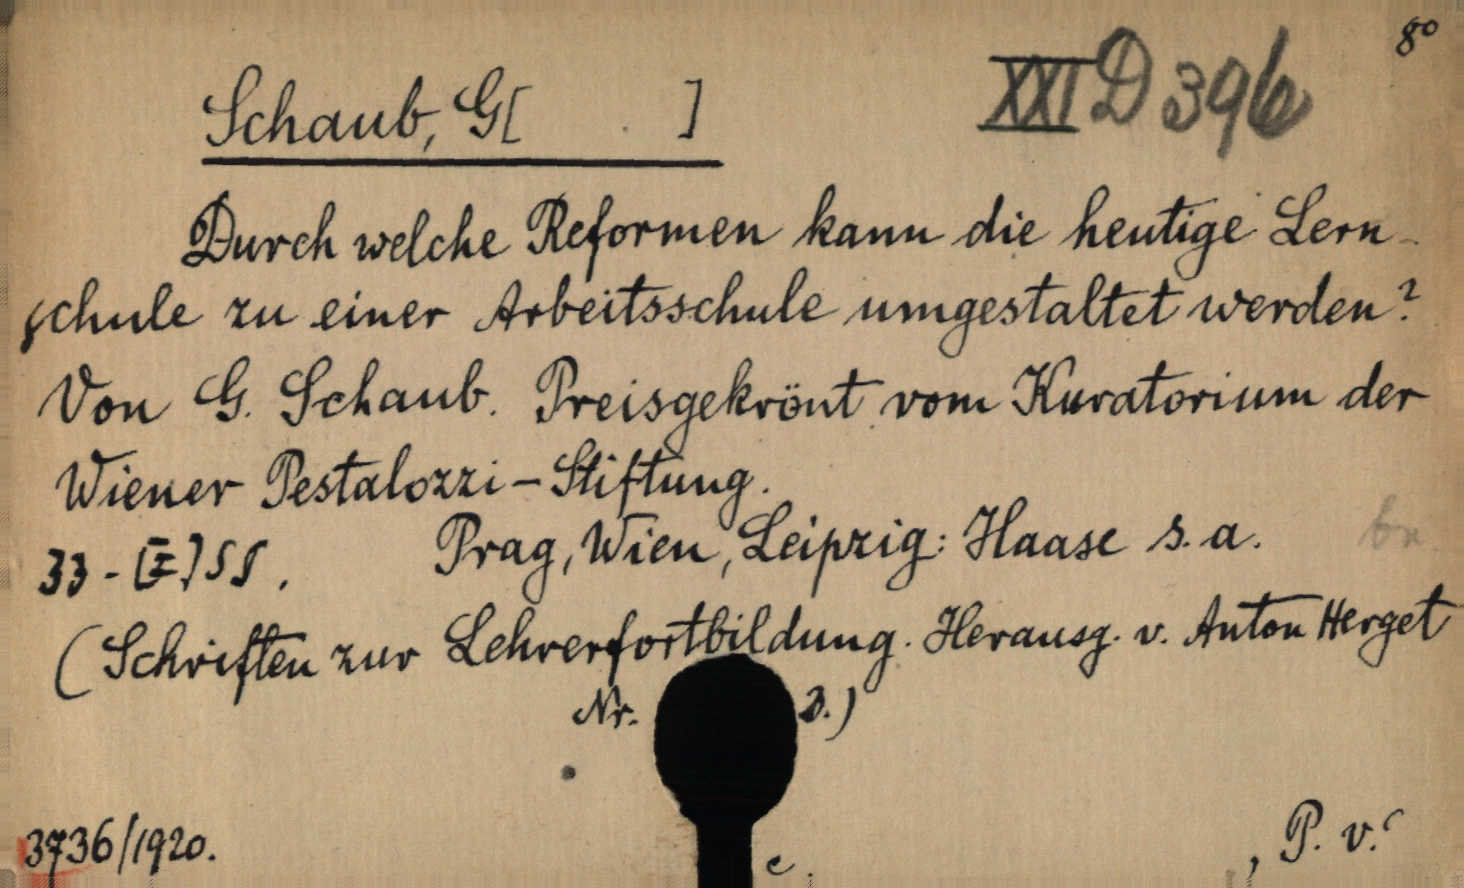 8°
Schaub, G[ ] XXI D 396
Durch welche Reformen kann die heutige Lern-
schule zu einer Arbeitsschule umgestaltet werden?
Von G. Schaub. Preisgekrönt vom Kuratorium der
Wiener Pestalozzi-Stiftung.
33-[I] SS. Prag, Wien, Leipzig: Haase s. a.
(Schriften zur Lehrerfortbildung. Herausg. v. Anton Herget
Nr. 3.)
3736/1920. P. v.